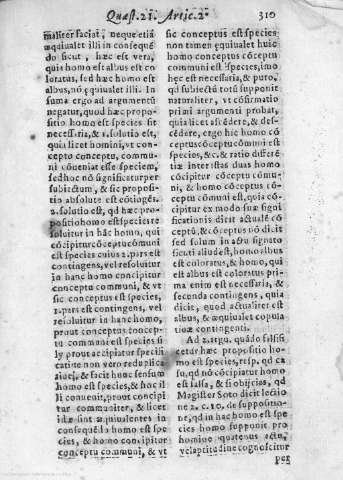 Quæst. 21. Artic. 2.
310
maliter faciat, neque etiã
æquiualet illi in consequẽ
do sicut, hæc est vera,
quia homo est albus est co
loratus, sed hæc homo est
albus, nõ æquiualet illi. In
suma ergo ad argumentũ
negatur, quod hæc propo-
sitio homo est species sit
necessaria, & 1. solutio est,
quia licet homini, vt con-
cepto conceptu, commu-
ni cõueniat esse speciem,
sed hoc nõ significatur per
subiectum, & sic proposi
tio absolute est cõtingẽs.
2. solutio est, qđ hæc pro-
positio homo est species re
soluitur in hãc homo, qui
cõcipitur cõceptu cõmuni
est species cuius 2. pars est
contingens, vel resoluitur
in hanc homo concipitur
conceptu communi, & vt
sic conceptus est species,
2. pars est contingens, vel
resoluitur in hanc homo,
prout conceptus concep-
tu communi est species si
ly prout accipiatur specifi
catiue non vero reduplica
tiue, & facit hunc sensum
homo est species, & hoc il
li conuenit, prout concipi
tur communiter, & licet
idẽ sint æquiualentes in
consequẽtia homo est spe-
cies, & homo concipitur
conceptu communi, & vt
sic conceptus est species,
non tamen equiualet huic
homo conceptus cõceptu
communi est species, imo
hęc est necessaria, & puro,
qđ subiectũ totũ supponit
naturaliter, vt cõfirmatio
primi argumenti probat,
quia licet ascẽdere, & des-
cẽdere, ergo hic homo cõ
ceptus cõceptu cõmuni est
species, &c. & ratio differẽ
tiæ inter istas duas homo
cõcipitur cõceptu cõmu-
ni, & homo cõceptus cõ-
ceptu cõmuni est, quia cõ-
cipitur ex modo suæ signi
ficationis dicit actualẽ cõ-
ceptũ, & cõceptus nõ dicit
sed solum in actu signato
significati aliud est, homo albus
est coloratus, & homo, qui
est albus est coloratus prima
enim est necessaria, &
secunda contingens, quia
dicit, quod actualiter est
albus, & æquiualet copula
tioni contingenti.
Ad 2. argu. quãdo falsifi
cetur hæc propositio ho-
mo est species, resp. qđ ca
su, qđ nõ cõcipiatur homo
est falsa, & si obijcias, qđ
Magister Soto dicit lectio
ne 2. c. 10. de suppositio-
ne, qđ in hac homo est spe
cies homo supponit pro
homine quatenus actu,
vel aptitudine cognoscitur
per